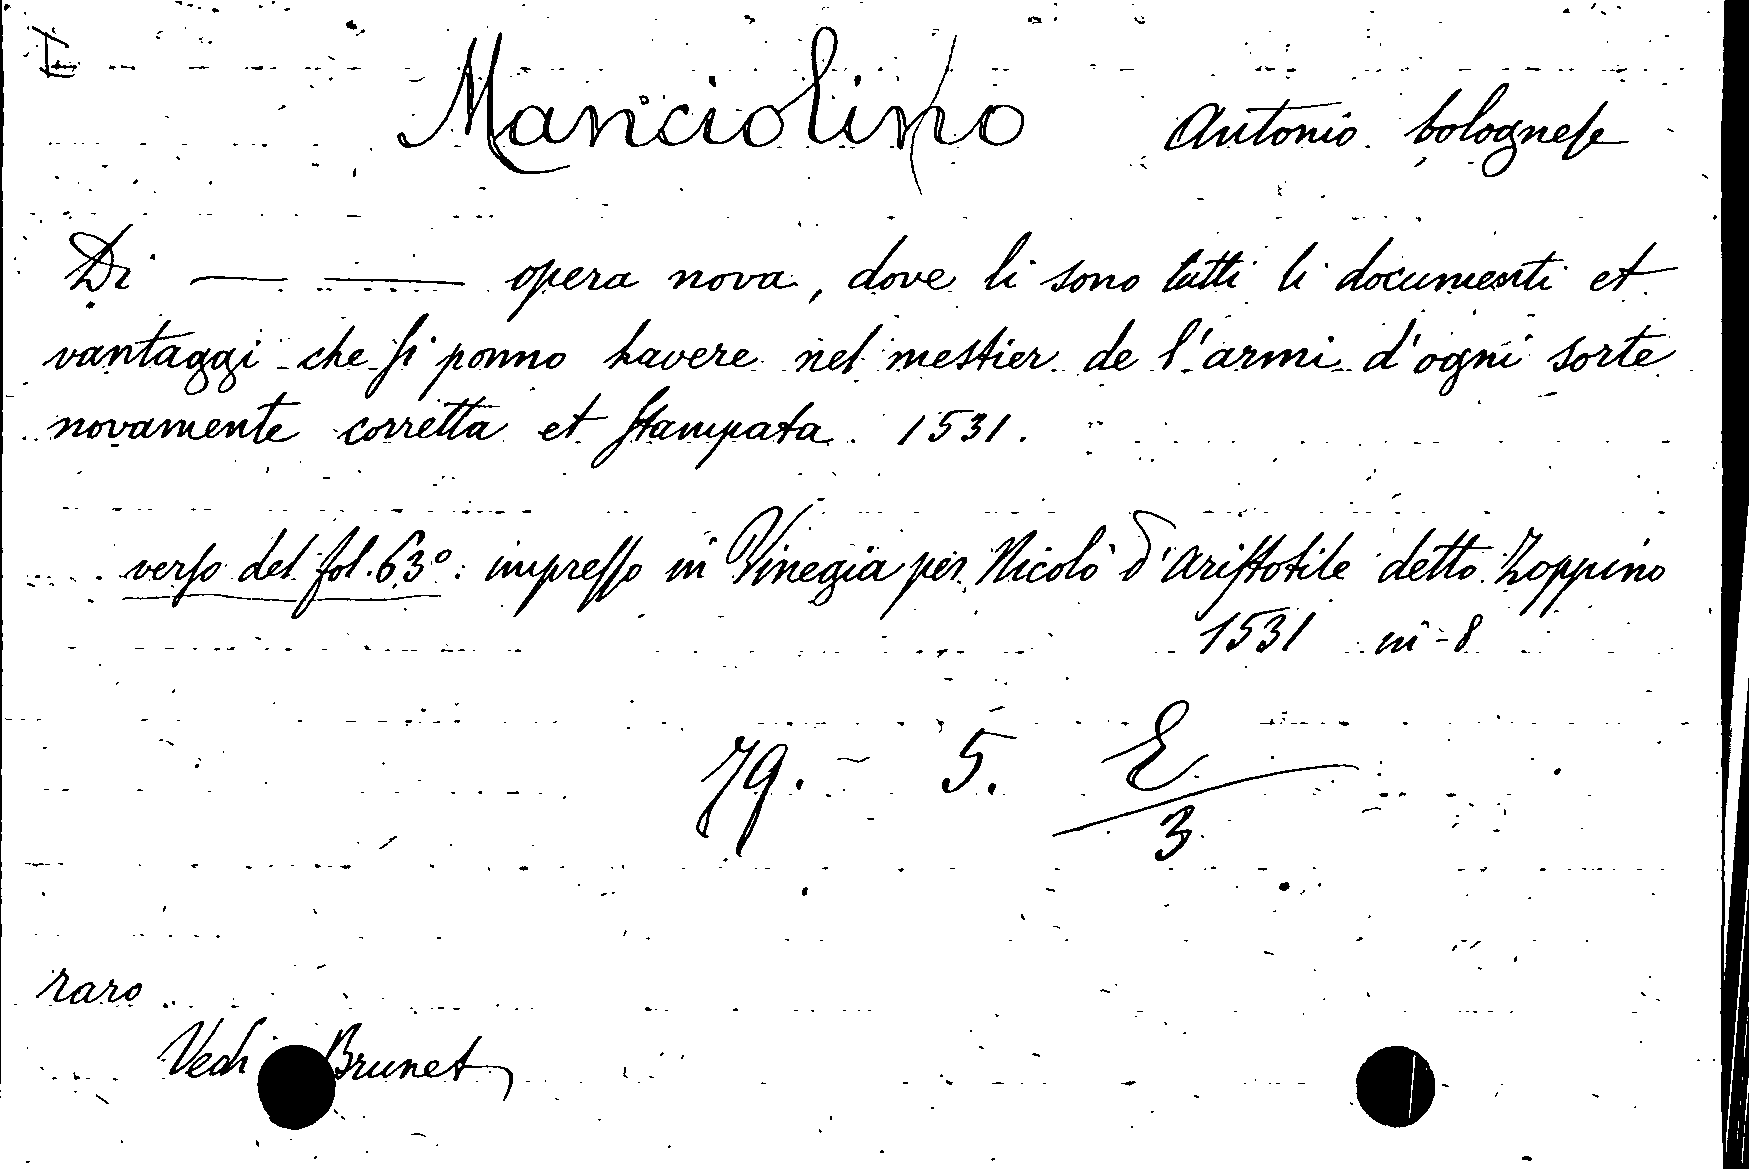 I
Manciolino Antonio bolognese
Di — — opera nova, dove li sono tutti li documenti et
vantaggi che si ponno havere nel mestier de l'armi d'ogni sorte
novamente corretta et stampata. 1531.
verso del fol. 63º: impresso in Vinegia per Nicolò d'Aristotile detto Zoppino
1531 in-8
79. - 5. E/3
raro
Vedi Brunet